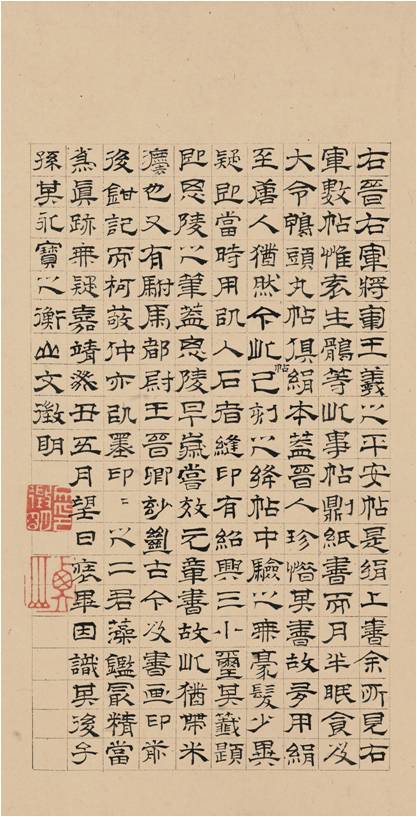 右晉右軍將軍王羲之平安帖是絹上書余所見右
軍數帖惟袁生鶻等此事帖鼎紙書而月半眠食及
大令鴨頭丸帖俱絹本蓋晉人珍惜其書故多用絹
至唐人猶然今此帖已刻之絳帖中驗之無豪髮少異
疑即當時用入石者縫印有紹興三小璽其籤題
即思陵之筆蓋思陵早歲嘗效元章書故此猶帶米
灋也又有駙馬都尉王晉卿玅古今及書画印前
後鉗記而柯敬仲亦墨印〻之二君藻鑑最精當
為真跡無疑嘉靖癸丑五月望日裝畢因識其後子
孫其永寶之衡山文徵明